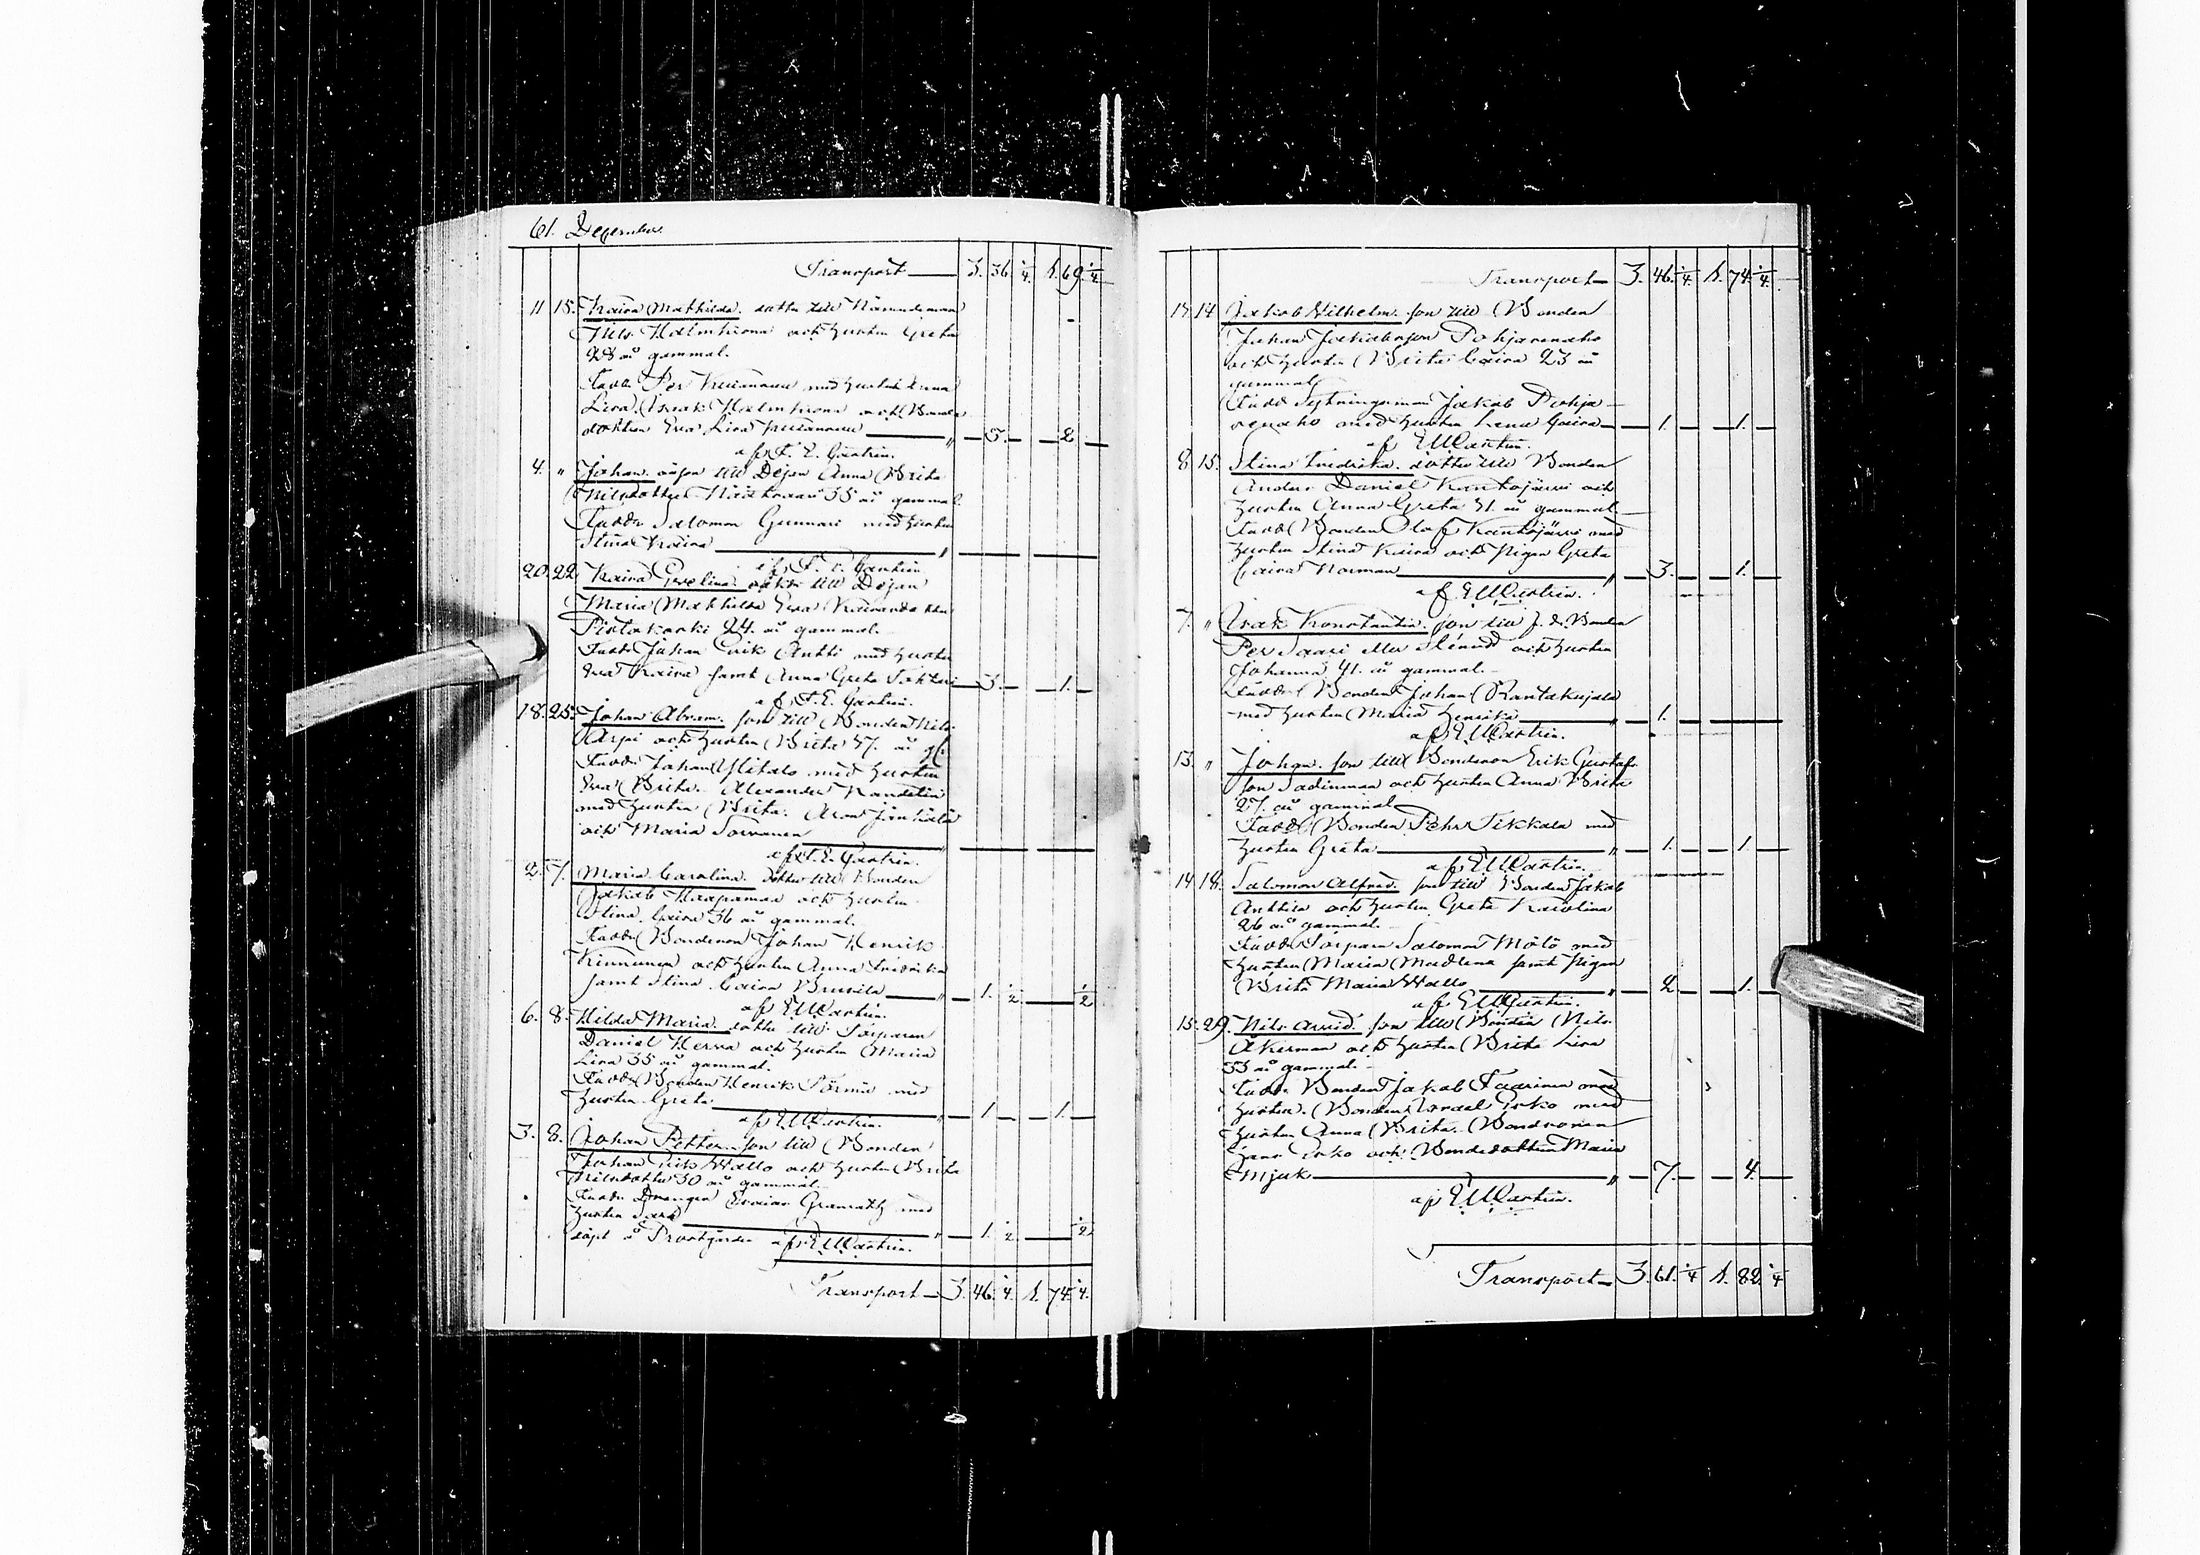 61. December
Transport — 3. 36. 1/4 S. 69. 1/4
11 15. Kaisa Mathilda. dotter till Nämndeman
Nils Malmstrom och hustru Greta
28 år gammal.
Fadd. Per med hustru Anna
Lisa. Isaak Malmstrom och Bonde
dottren Eva Lisa — " — 5. — 2. —
af F. E. Castrén.
4. " Johan. oä son till Dejan Anna Brita
Nilsdotter 35 år gammal.
Fadd. Salomon Gunnari med hustru
Stina Kaisa — "
af F. E. Castrén
20. 22. Kaisa Evelina. dotter till Dejan
Maria Mathilda Eva
24. år gammal.
Fadd. Johan Erik Antti med hustru
Eva Kaisa samt Anna Greta — 3. — 1. —
af F. E. Castrén.
18. 25. Johan Abram. son till Bonden Nils
Arpi och hustru Brita 37. år gl.
Fadd. Johan Ylitalo med hustru
Eva Brita. Alexander
med hustru Brita. Aron
och Maria — "
af F. E. Castrén.
2. 7. Maria Carolina. dotter till Bonden
Jakob Haapamaa och hustru
Stina Caisa 36 år gammal.
Fadd. Bondeson Johan Henrik
Kinnunen och hustru Anna Fredrika
samt Stina Caisa — " — 1. 1/2 — 1/2
af E W Castrén.
6. 8. Hilda Maria. dotter till Torparen
Daniel Herva och hustru Maria
Lisa 35 år gammal.
Fadd. Bonden Henrik Törmä med
hustru Greta — " — 1 — 1. —
af E W Castrén.
3. 8. Johan Petter. son till Bonden
Johan Erik Wallo och hustru Brita
Nilsdotter 30 år gammal.
Fadd. Drengen Esaias Granroth med
hustru Sara — " — 1. 1/2 — 1/2
döpt å Prostgården af E W Castrén.
Transport — 3. 46. 1/4. S. 74. 1/4.
Transport — 3. 46. 1/4. S. 74. 1/4.
14 Jakob Vilhelm. son till Bonden
Johan Jakobsson
och hustru Brita Caisa 23 år
gammal
Fadd. Jakob
med hustru Lena Caisa — 1. — 1. —
af E W Castrén.
8. 15. Stina Fredrika. dotter till Bonden
Anders Daniel Kantojärvi och
hustru Anna Greta 31. år gammal.
Fadd. Bonden Olof Kantojärvi med
hustru Stina Kaisa och Pigan Greta
Caisa Norman — " — 3. — 1. —
af E W Castrén.
7. " Isak Konstantin. son till f. d. Bonden
Per Saari eller och hustru
Johanna 41. år gammal.
Fadd. Bonden Johan Rantakujala
med hustru Maria — " — 1. —
af E W Castrén.
13. " Johan. son till Bondeson Erik Gustaf
son Sadinmaa och hustru Anna Brita
27. år gammal
Fadd. Bonden Pehr Tikkala med
hustru Greta — " — 1. — 1. —
af E W Castrén.
14 18. Salomon Alfred. son till Bonden Jakob
Anttila och hustru Greta Karolina
26 år gammal.
Fadd. Torparn Salomon med
hustru Maria Madlena samt Pigan
Brita Maria Wallo — " — 2 — 1. —
af E W Castrén.
15. 29. Nils Arvid. son till Bonden Nils
Åkerman och hustru Brita Lisa
33 år gammal.
Fadd. Bonden Jakob Taarinen med
hustru. Bonden Israel med
hustru Anna Brita. Bondesonen
och Bondedottren Maria
Mjuk — " — 7. — 4. —
af E W Castrén.
Transport — 3. 61. 1/4 S. 82. 1/4